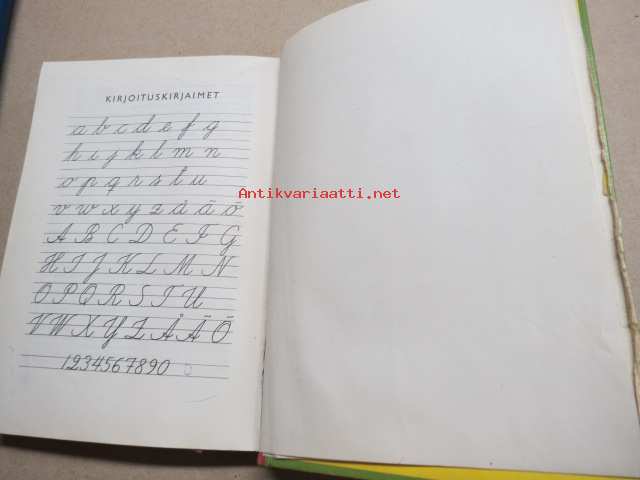 KIRJOITUSKIRJAIMET
a b c d e f g
h i j k l m n
o p q r s t u
v w x y z å ä ö
A B C D E F G
H I J K L M N
O P Q R S T U
V W X Y Z Å Ä Ö
1234567890
Antikvariaatti.net